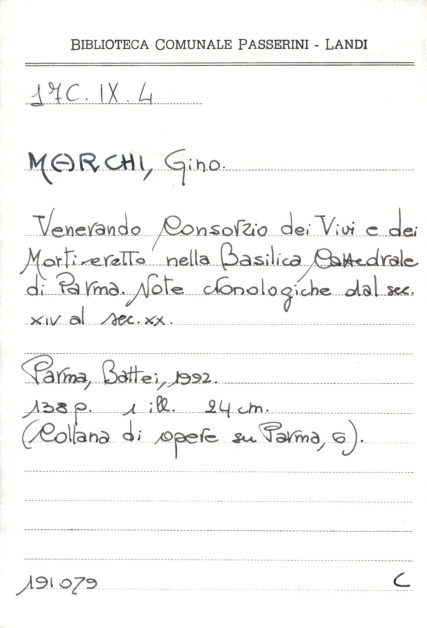 BIBLIOTECA COMUNALE PASSERINI - LANDI
17C. IX. 4
MARCHI, Gino.
Venerando Consorzio dei Vivi e dei
Morti eretto nella Basilica Cattedrale
di Parma. Note cronologiche dal sec.
XIV al sec. XX.
Parma, Battei, 1992.
138 p. 1 ill. 24 cm.
(Collana di opere su Parma, 6).
191079 C